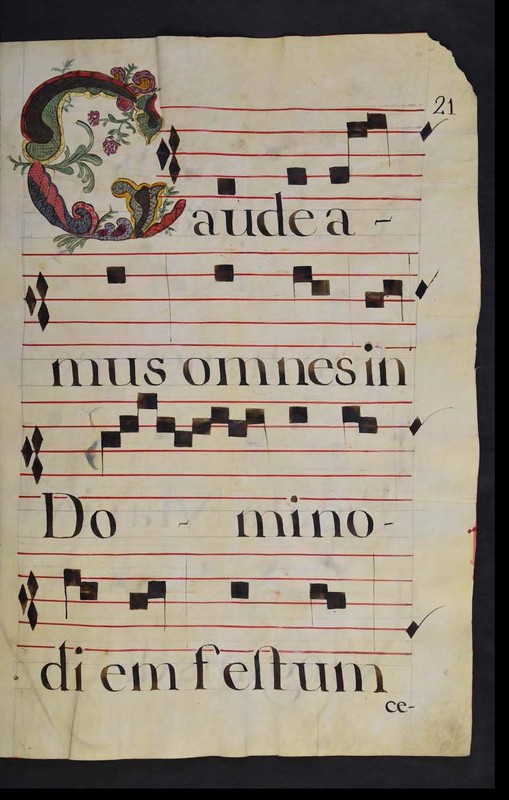 21
Gaudea-
mus omnes in
Do - mino-
diem feſtum
ce-